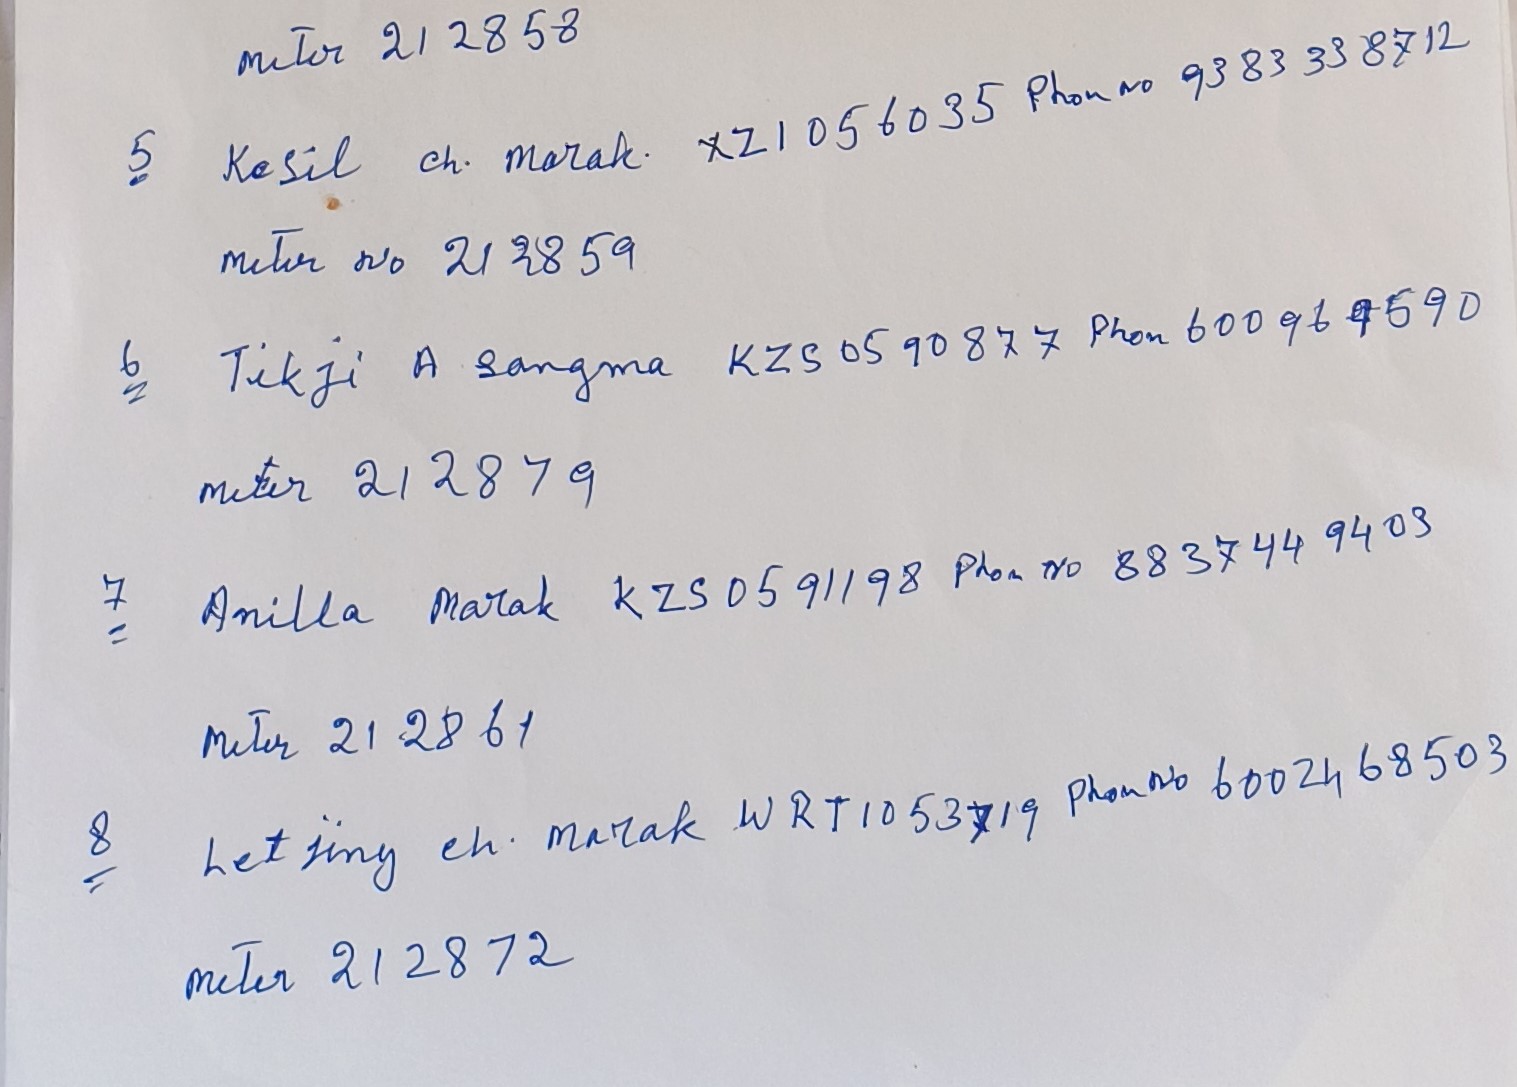 meter 212858
5 Kesil ch. Marak. XZ1056035 Phon no 9383338712
meter No 212859
6 Tikji A Sangma KZS0590877 Phon 600969590
meter 212879
7 Anilla Marak KZS0591198 Phon no 8837449403
meter 212861
8 Letjing ch. Marak WRT1053719 Phon No 6002468503
meter 212872